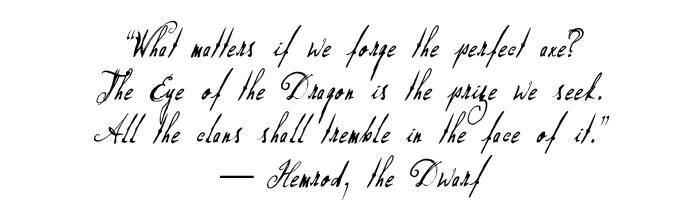 “What matters if we forge the perfect axe?
The Eye of the Dragon is the prize we seek.
All the clans shall tremble in the face of it.”
— Hemrod, the Dwarf